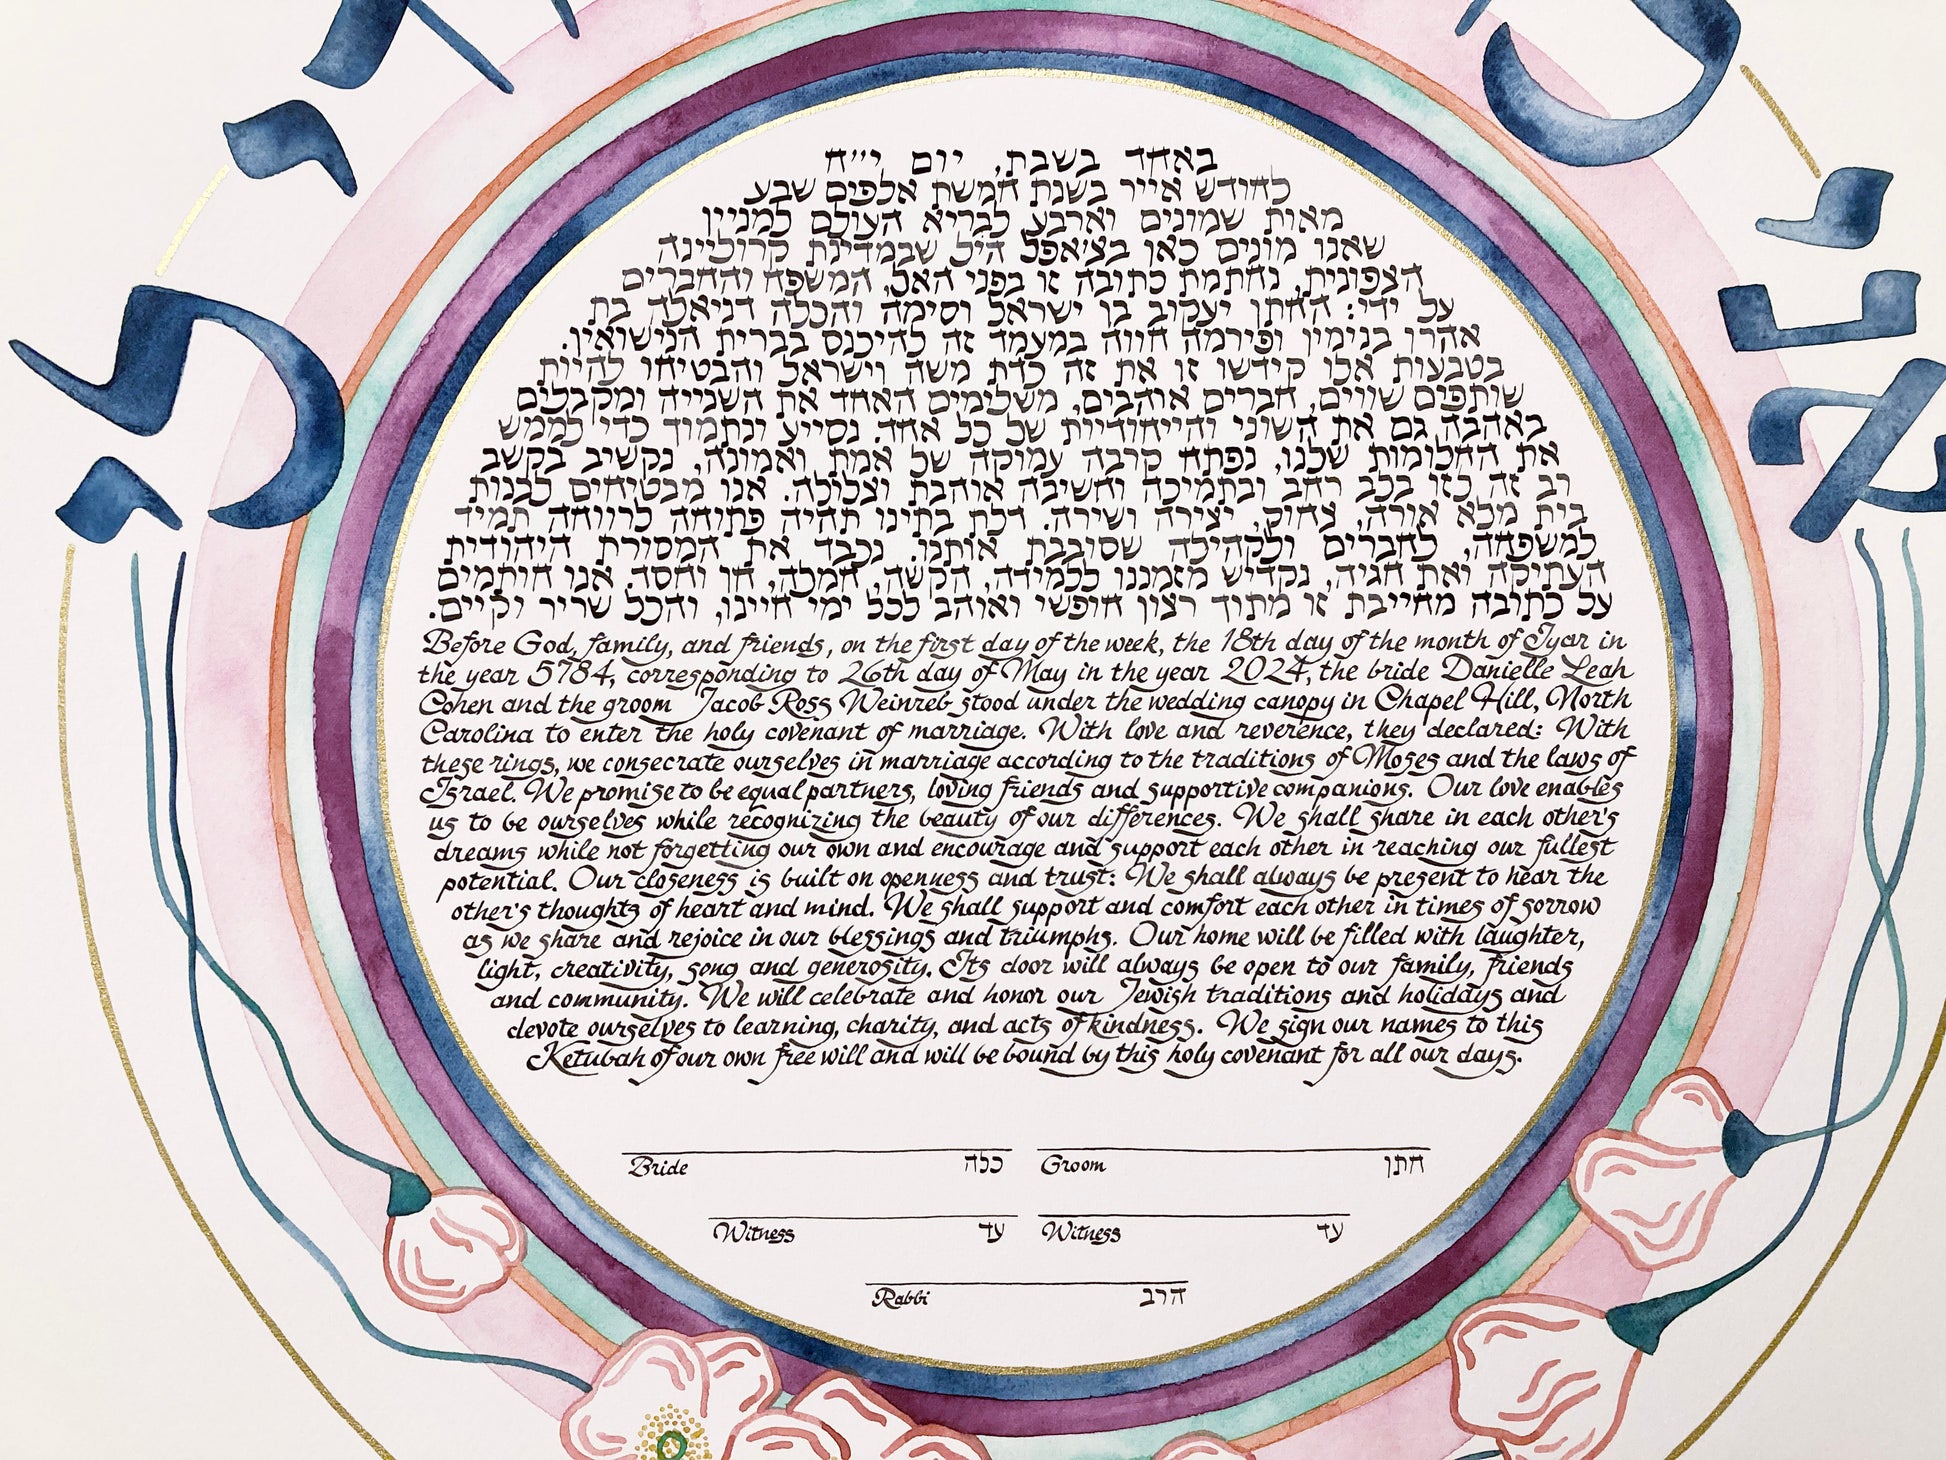 אני
לי
באחד בשבת, יום י״ח
לחודש אייר בשנת חמשת אלפים שבע
מאות שמונים וארבע לבריא העולם למניין
שאנו מונים כאן בצ׳אפל היל שבמדינת קרוליינה
הצפונית, נחתמת כתובה זו בפני האל, המשפח והחברים
על ידי: החתן יעקוב בן ישראל וסימה והכלה דניאלה בת
אהרן בנימין ופירמה חווה במעמד זה להיכנס בברית הנישואין.
בטבעות אלו קידשו זו את זה כדת משה וישראל והבטיחו להיות
שותפים שווים, חברים אוהבים, משלימים האחד את השנייה ומקבלים
באהבה גם את השוני והייחודיות של כל אחד. נסייע ונתמוך כדי לממש
את החלומות שלנו, נפתח קרבה עמוקה של אמת ואמונה, נקשיב בקשב
רב זה לזו בלב רחב ובתמיכה וחשיבה אוהבת וצלולה. אנו מבטיחים לבנות
בית מלא אורה, צחוק, יצירה ושירה. דלת בתינו תהיה פתוחה לרווחה תמיד
למשפחה, לחברים ולקהילה שסובבת אותנו. נכבד את המסורת היהודית
העתיקה ואת חגיה, נקדיש מזמננו ללמידה, הקשה, חמלה, חן וחסד. אנו חותמים
על כתובה מחייבת זו מתוך רצון חופשי ואוהב לכל ימי חיינו, והכל שריר וקיים.
Before God, family, and friends, on the first day of the week, the 18th day of the month of Iyar in
the year 5784, corresponding to 26th day of May in the year 2024, the bride Danielle Leah
Cohen and the groom Jacob Ross Weinreb stood under the wedding canopy in Chapel Hill, North
Carolina to enter the holy covenant of marriage. With love and reverence, they declared: With
these rings, we consecrate ourselves in marriage according to the traditions of Moses and the laws of
Israel. We promise to be equal partners, loving friends and supportive companions. Our love enables
us to be ourselves while recognizing the beauty of our differences. We shall share in each other's
dreams while not forgetting our own and encourage and support each other in reaching our fullest
potential. Our closeness is built on openness and trust: We shall always be present to hear the
other's thoughts of heart and mind. We shall support and comfort each other in times of sorrow
as we share and rejoice in our blessings and triumphs. Our home will be filled with laughter,
light, creativity, song and generosity. Its door will always be open to our family, friends
and community. We will celebrate and honor our Jewish traditions and holidays and
devote ourselves to learning, charity, and acts of kindness. We sign our names to this
Ketubah of our own free will and will be bound by this holy covenant for all our days.
Bride כלה Groom חתן
Witness עד Witness עד
Rabbi הרב